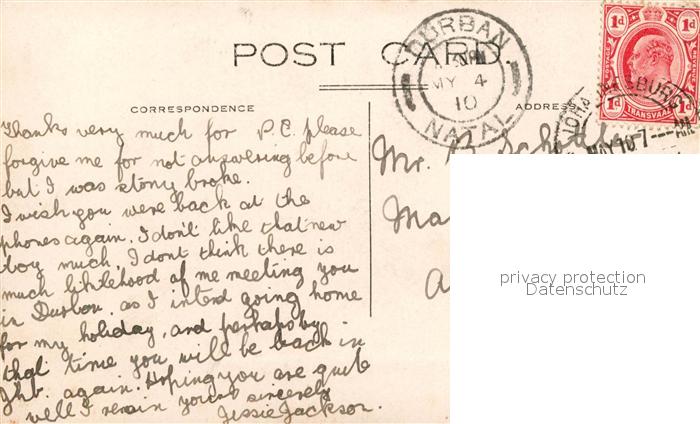 DURBAN
MY 4
10
NATAL
POST CARD.
1d 1d
POSTAGE REVENUE
1d TRANSVAAL 1d
JOHANNESBURG
MAY 10 7 - AM
CORRESPONDENCE
ADDRESS
Thanks very much for P.C. please
forgive me for not answering before
but I was stony broke.
I wish you were back at the
phones again. I don't like that new
boy much. I dont think there is
much liklilehood of me meeting you
in Durban. as I intend going home
for my holiday, and perhaps by
that time you will be back in
Jhb. again. Hoping you are quite
well I remain yours sincerely
Jessie Jackson.
Mr.
Ma
privacy protection
Datenschutz